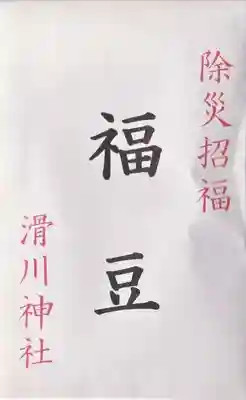 除災招福
福豆
滑川神社